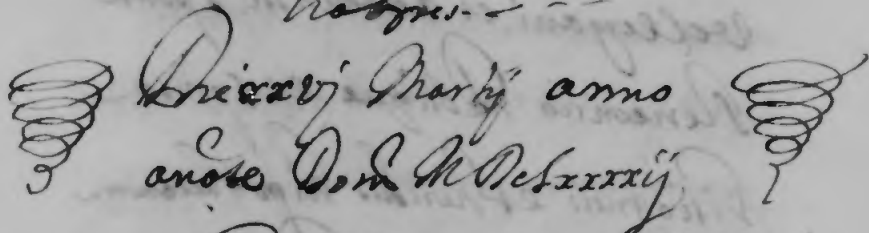 Die xxvj Martij anno
Dom̃ M Dclxxxxij